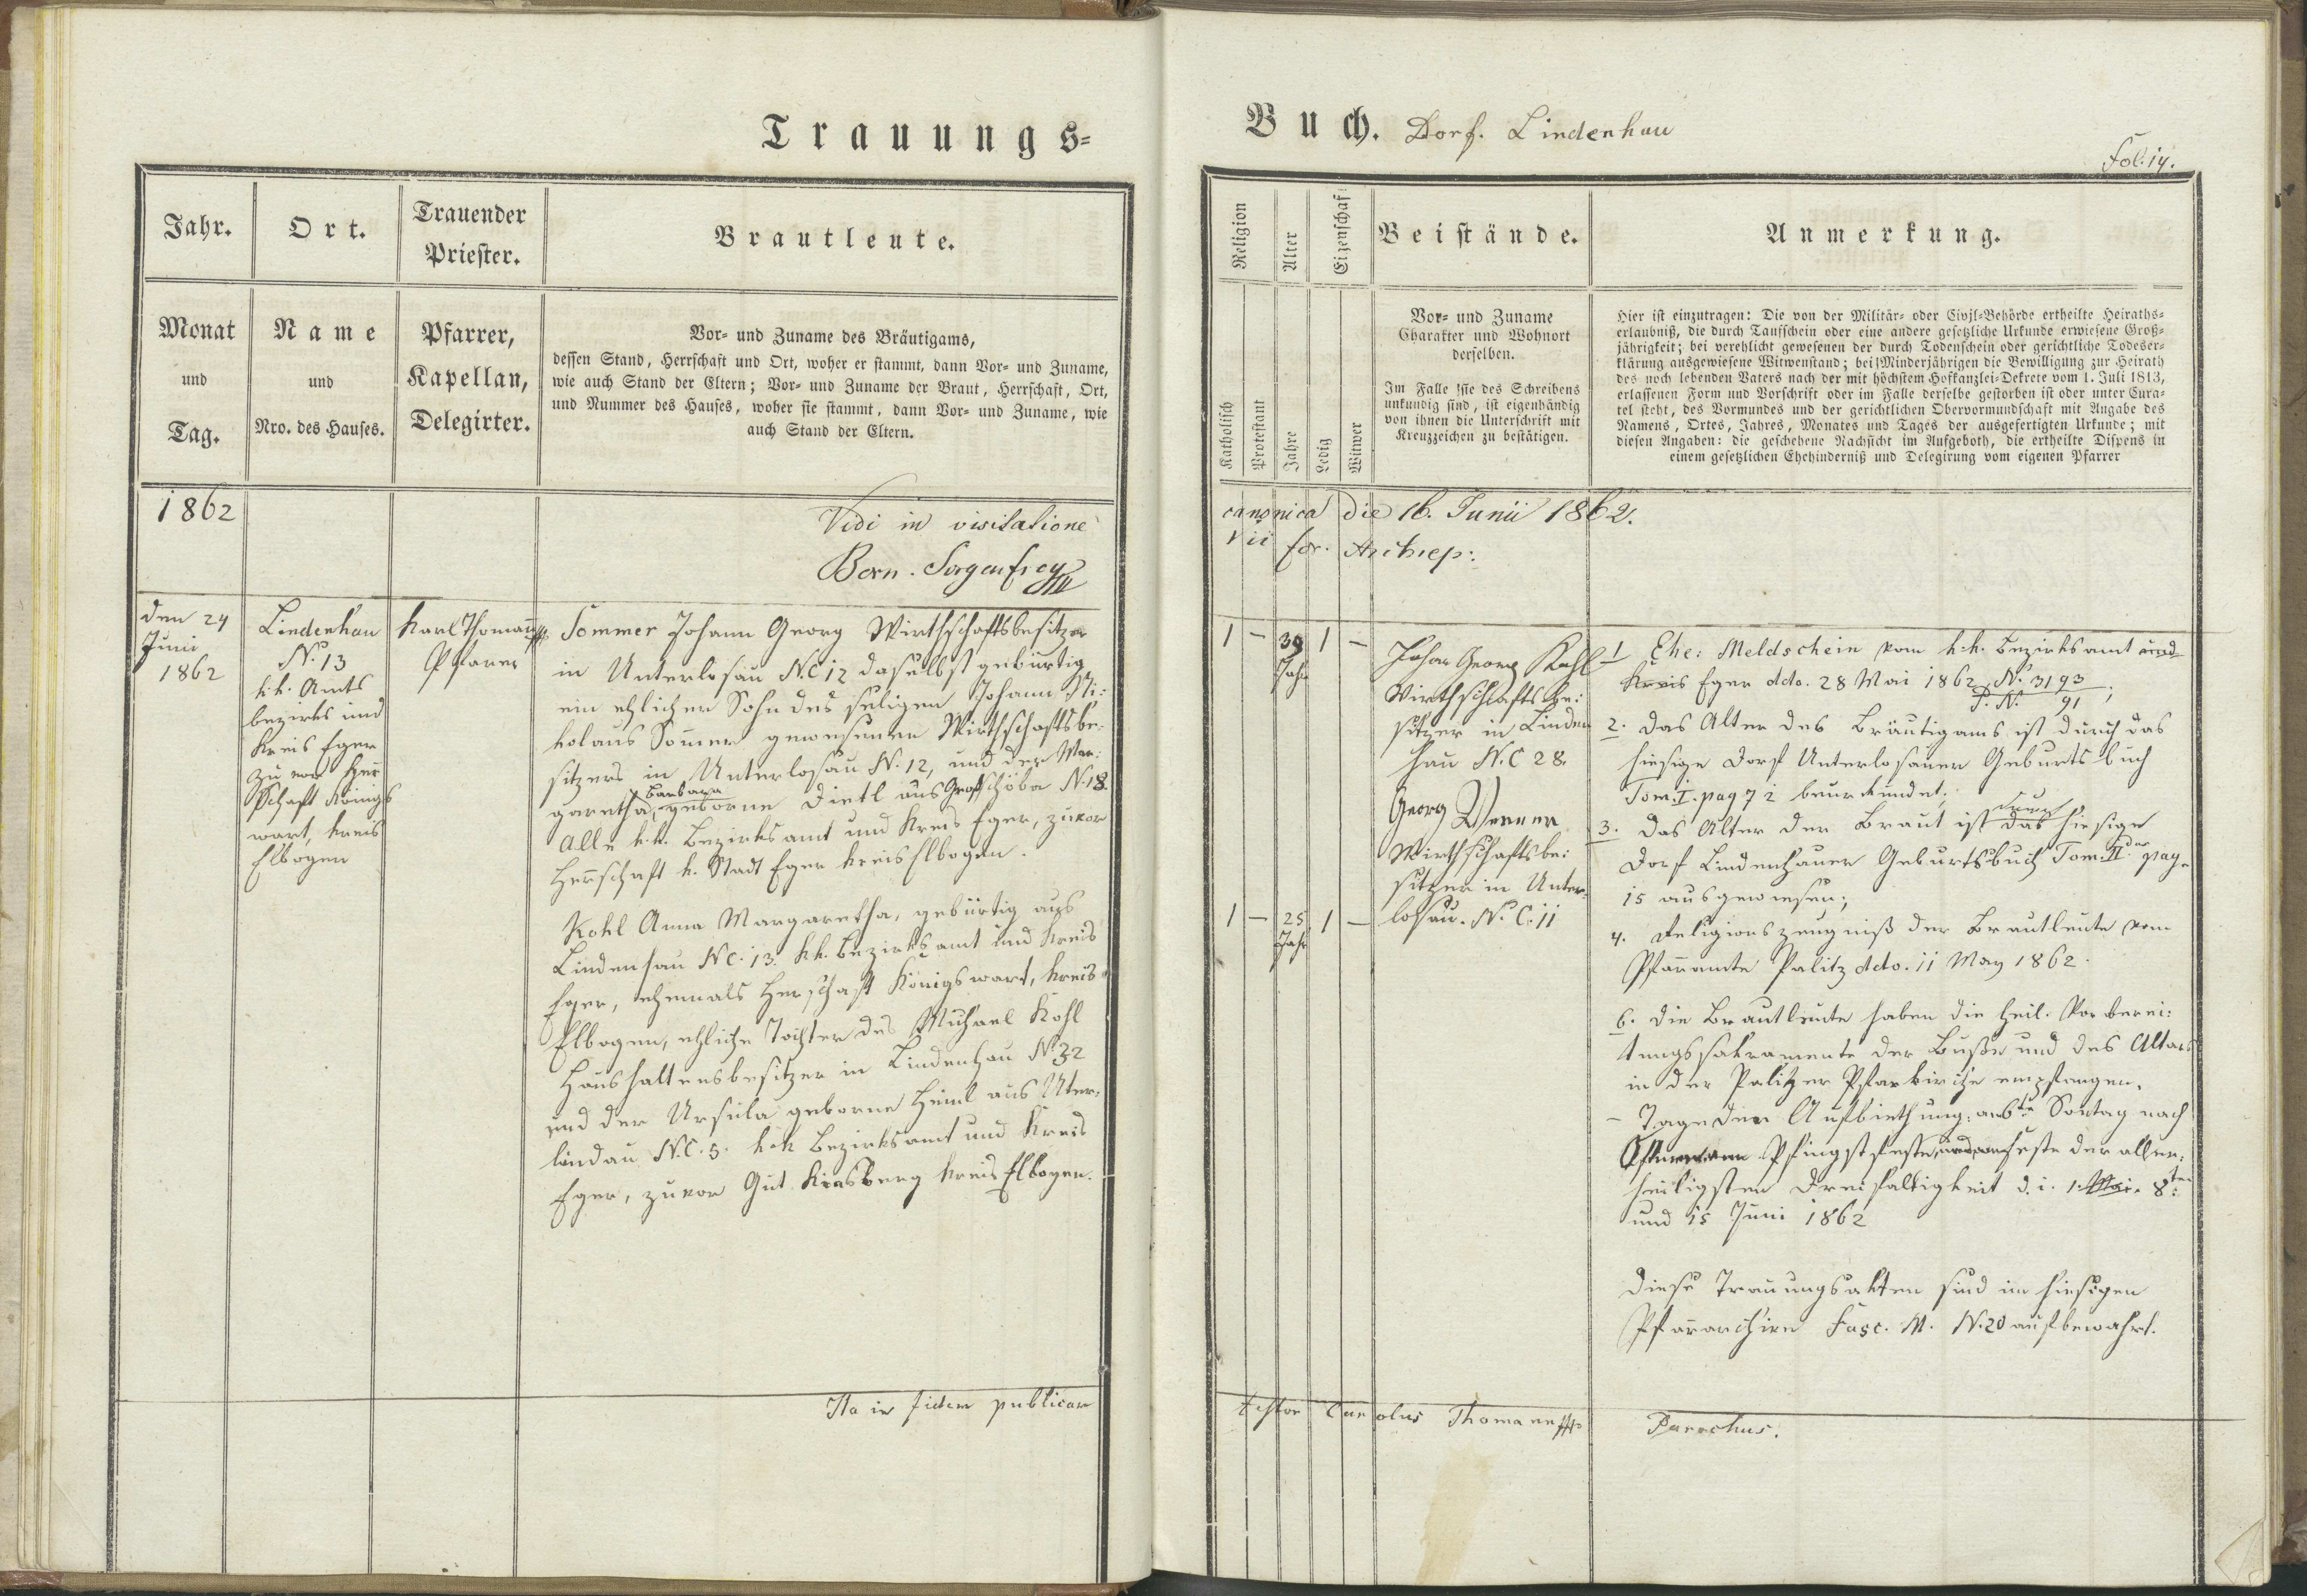 Trauungs-
Buch. Dorf. Lindenhau
Fol. 14.
Jahr.
Ort.
Trauender
Priester.
Brautleute.
Monat
und
Tag.
Name
und
Nro. des Hauses.
Pfarrer,
Kapellan,
Delegirter.
Vor- und Zuname des Bräutigams,
dessen Stand, Herrschaft und Ort, woher er stammt, dann Vor- und Zuname,
wie auch Stand der Eltern; Vor- und Zuname der Braut, Herrschaft, Ort,
und Nummer des Hauses, woher sie stammt, dann Vor- und Zuname, wie
auch Stand der Eltern.
Religion
Alter
Eigenschaf
Beistände.
Anmerkung.
Katholisch
Protestant
Jahre
Ledig
Witwer
Vor- und Zuname
Charakter und Wohnort
derselben.
Im Falle sie des Schreibens
unkundig sind, ist eigenhändig
von ihnen die Unterschrift mit
Kreuzzeichen zu bestätigen.
Hier ist einzutragen: Die von der Militär- oder Civil-Behörde ertheilte Heiraths-
erlaubniß, die durch Taufschein oder eine andere gesetzliche Urkunde erwiesene Groß-
jährigkeit; bei verehlicht gewesenen der durch Todenschein oder gerichtliche Todeser-
klärung ausgewiesene Witwenstand; bei Minderjährigen die Bewilligung zur Heirath
des noch lebenden Vaters nach der mit höchstem Hofkanzlei-Dekrete vom 1. Juli 1813,
erlassenen Form und Vorschrift oder im Falle derselbe gestorben ist oder unter Cura-
tel steht, des Vormundes und der gerichtlichen Obervormundschaft mit Angabe des
Namens, Ortes, Jahres, Monates und Tages der ausgefertigten Urkunde; mit
diesen Angaben: die geschehene Nachsicht im Aufgeboth, die ertheilte Dispens in
einem gesetzlichen Ehehinderniß und Delegirung vom eigenen Pfarrer
1862
Vidi in visitatione canonica die 16. Junii 1862.
Bern. Sorgenfrey Vic. for. Archiep:
den 24
Juni
1862
Lindenhau
No. 13
k.k. Amts
bezirks und
Kreis Eger
zuvor Herr
schaft Königs
wart, Kreis
Elbogen
Karl Thomann
Pfarrer
Sommer Johann Georg Wirthschaftsbesitzer
in Unterlosau N.C 12 daselbst gebürtig
ein ehlicher Sohn des seligen Johann Ni:
kolaus Sommer gewesenen Wirthschaftsbe:
sitzers in Unterlosau N. 12, und der Mar:
garetha, Barbara geborne Dietl aus Großschöba N. 18.
Alle k.k. Bezirksamt und Kreis Eger, zuvor
Herrschaft k. Stadt Eger Kreis Elbogen.
Kohl Anna Margaretha, gebürtig aus
Lindenhau NC. 13. k.k. Bezirksamt und Kreis
Eger, ehemals Herschaft Königswart, Kreis
Elbogen, ehliche Tochter des Michael Kohl
Haushaltensbesitzer in Lindenhau N. 32
und der Ursula geborne Heinl aus Unter-
lindau N.C. 5. k.k Bezirksamt und Kreis
Eger, zuvor Gut Kinsberg Kreis Elbogen.
1 – 39 Jahr 1 –
1 – 25 Jahr 1 –
Johan Georg Kohl
Wirthschaftsbe:
sitzer in Linden
hau N.C 28.
Georg Werner
Wirthschaftsbe:
sitzer in Unter-
losau. N. C. 11
1 Ehe: Meldschein vom k.k. Bezirksamt und
Kreis Eger ddo. 28 Mai 1862 N. 3193
P. N. 91;
2. Das Alter des Bräutigams ist durch das
hiesige Dorf Unterlosauer Geburts-buch
Tom. I. pag 72 beurkundet;
3. Das Alter der Braut ist durch das hiesige
Dorf Lindenhauer Geburtsbuch Tom. II. pag.
15 ausgewiesen;
4. Religionszeugniß der Brautleute vom
Pfarramte Palitz ddo. 11 May 1862.
6. Die Brautleute haben die heil. Vorberei:
tungssakramente der Buße und des Altars
in der Palitzer Pfarkirche empfangen.
– Tage der Aufbiethung: am 6te Sontag nach
Ostern am Pfingstfeste, und am Feste der aller:
heiligsten Dreifaltigkeit d. i. 1. Mai. 8ten
und 15 Juni 1862
Diese Trauungsakten sind im hiesigen
Pfararchive Fasc. M. N. 20 aufbewahrt.
Ita in fidem publicam testor Carolus Thomann Parochus.